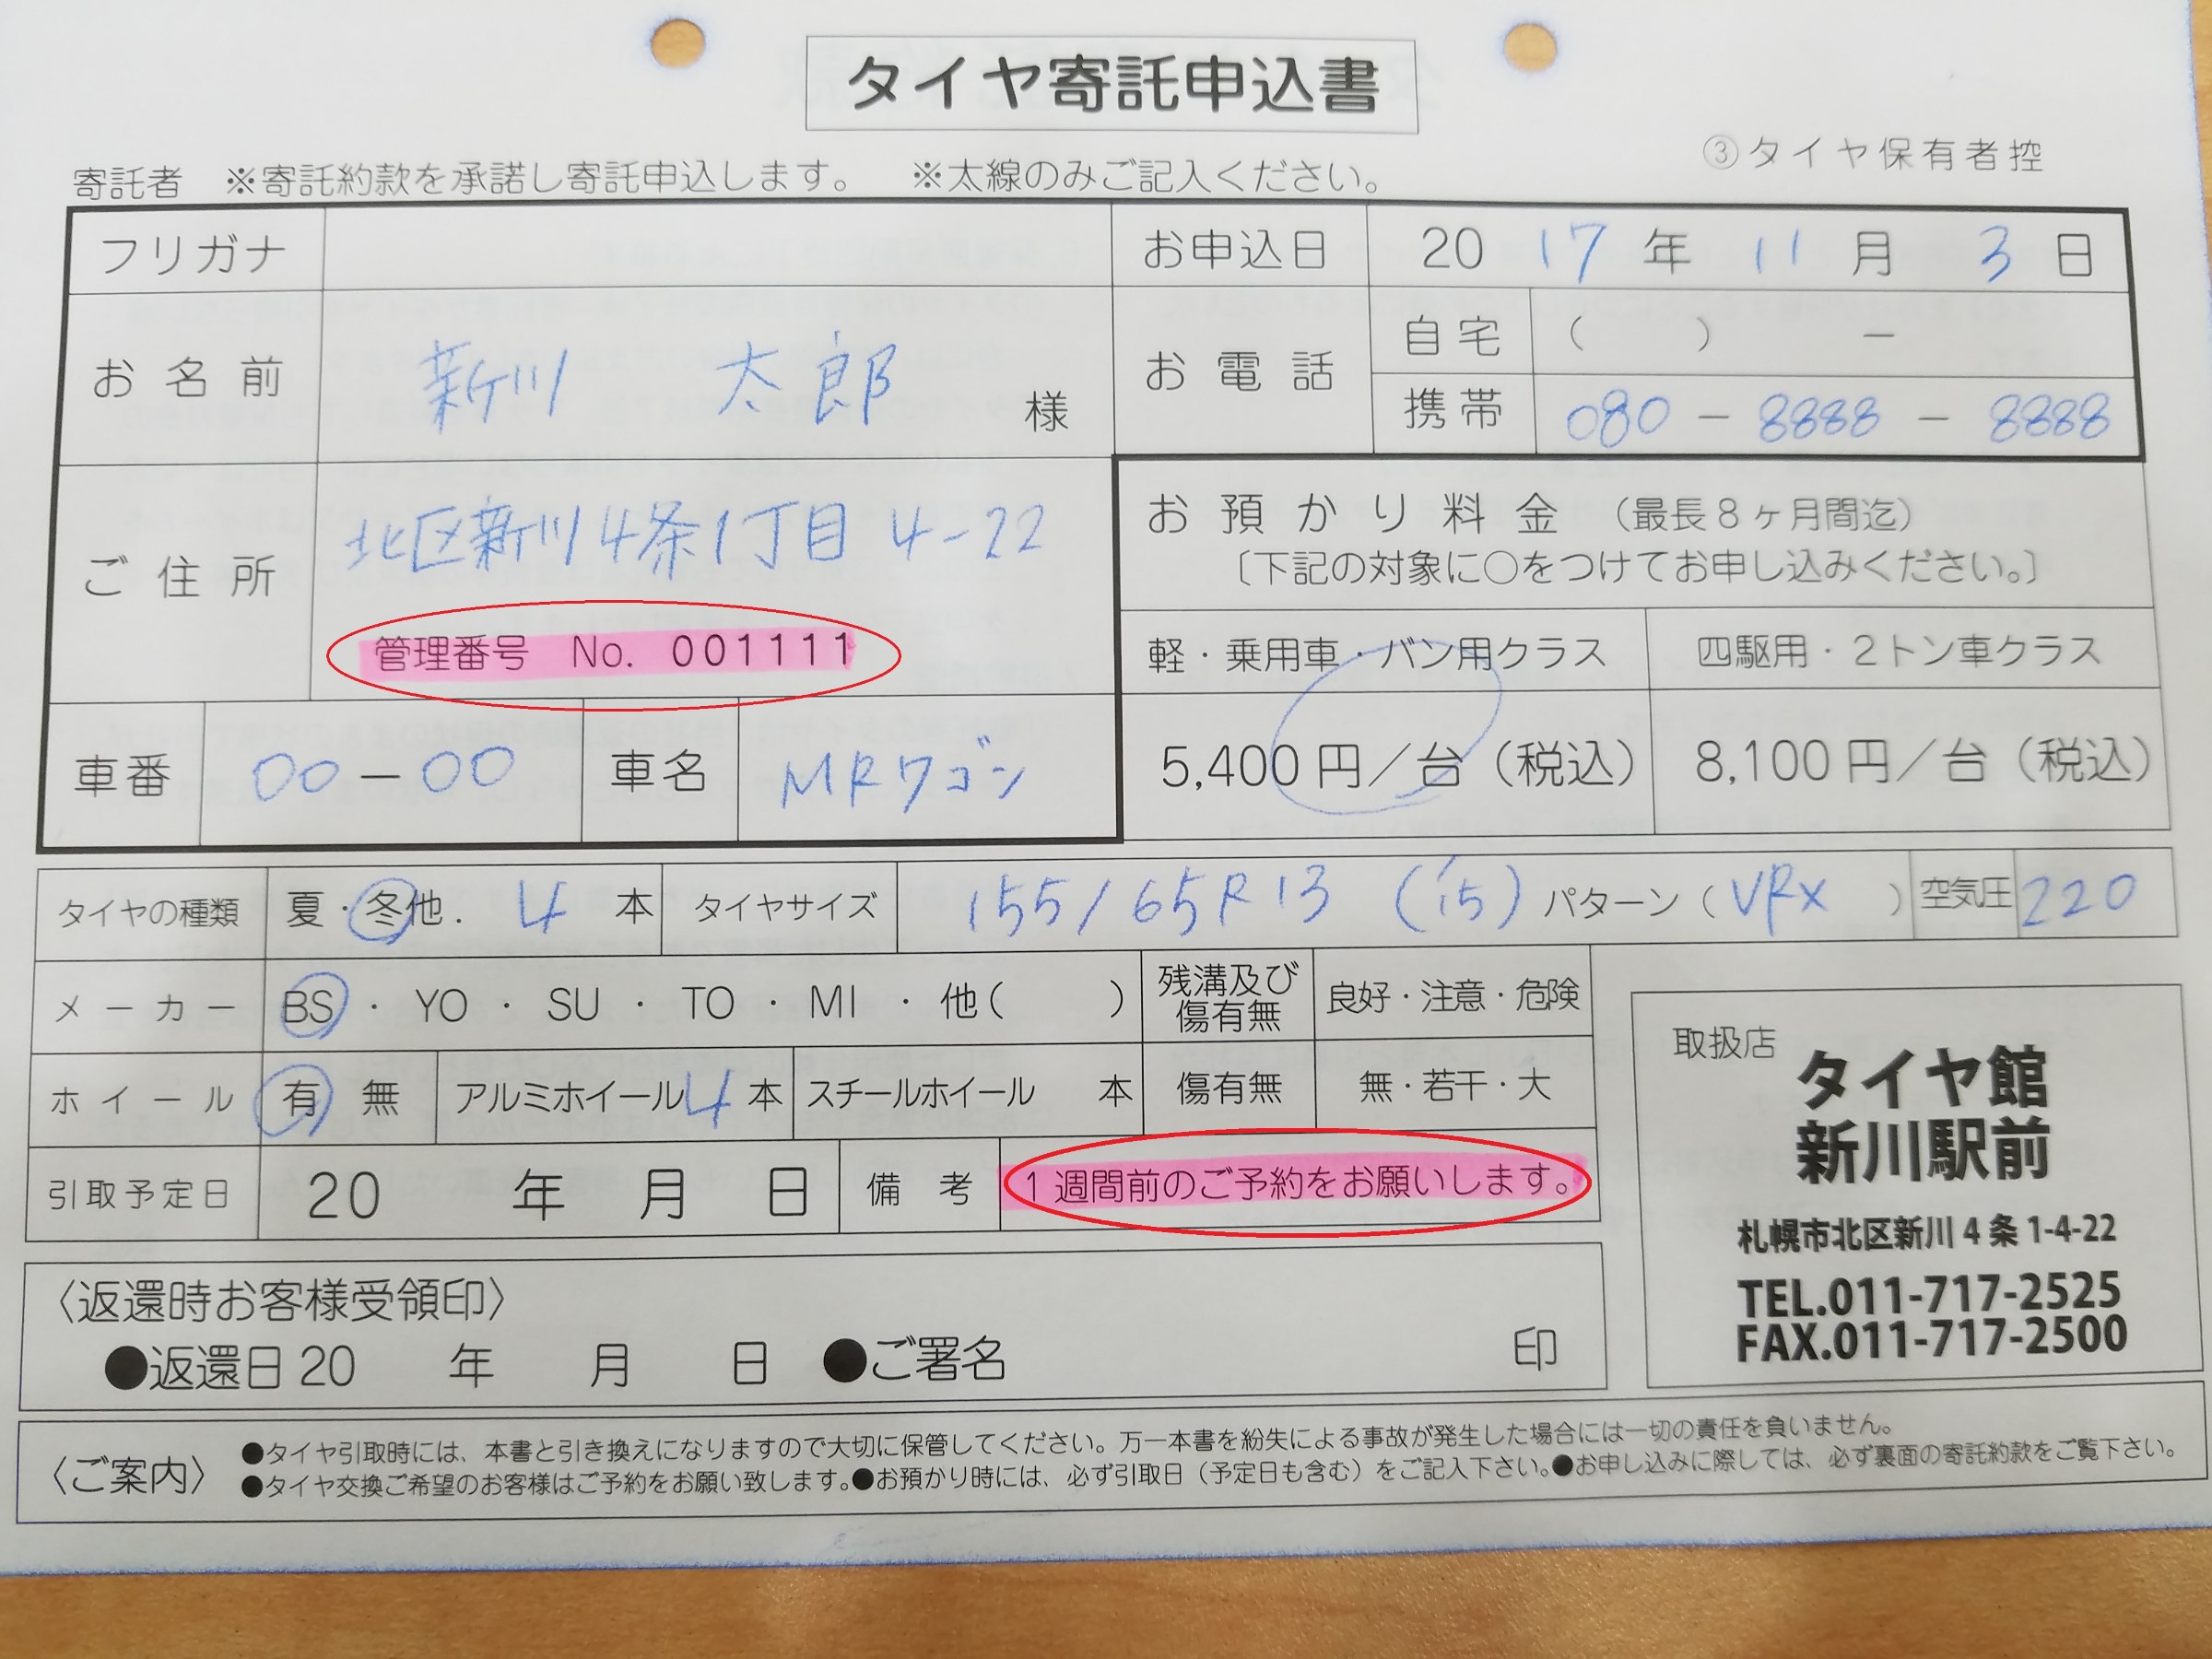 タイヤ寄託申込書
③タイヤ保有者控
寄託者 ※寄託約款を承諾し寄託申込します。 ※太線のみご記入ください。
フリガナ
お申込日 2017年11月3日
お名前 新川 太郎 様
お電話 自宅 ( ) －
携帯 080－8888－8888
ご住所 北区新川4条1丁目4-22
管理番号 No. 001111
お預かり料金 (最長8ヶ月間迄)
〔下記の対象に○をつけてお申し込みください。〕
軽・乗用車・バン用クラス 四駆用・2トン車クラス
5,400円／台(税込) 8,100円／台(税込)
車番 00－00 車名 MRワゴン
タイヤの種類 夏・冬他. 4本 タイヤサイズ 155/65R13 ('15) パターン(VRX) 空気圧 220
メーカー BS・YO・SU・TO・MI・他( ) 残溝及び傷有無 良好・注意・危険
ホイール 有 無 アルミホイール4本 スチールホイール 本 傷有無 無・若干・大
引取予定日 20 年 月 日 備考 1週間前のご予約をお願いします。
〈返還時お客様受領印〉
●返還日20 年 月 日 ●ご署名 印
取扱店
タイヤ館
新川駅前
札幌市北区新川4条1-4-22
TEL.011-717-2525
FAX.011-717-2500
〈ご案内〉
●タイヤ引取時には、本書と引き換えになりますので大切に保管してください。万一本書を紛失による事故が発生した場合には一切の責任を負いません。
●タイヤ交換ご希望のお客様はご予約をお願い致します。●お預かり時には、必ず引取日(予定日も含む)をご記入下さい。●お申し込みに際しては、必ず裏面の寄託約款をご覧下さい。